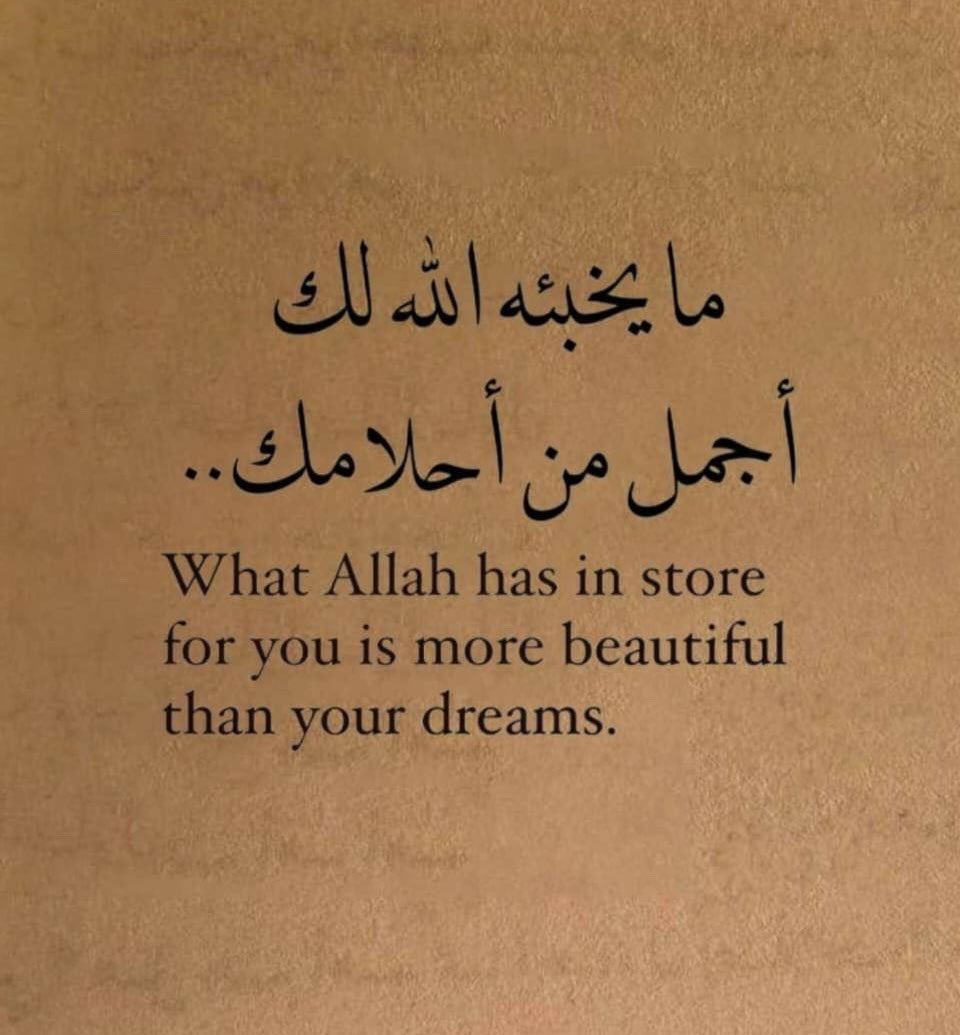 ما يخبئه الله لك
أجمل من أحلامك..
What Allah has in store
for you is more beautiful
than your dreams.